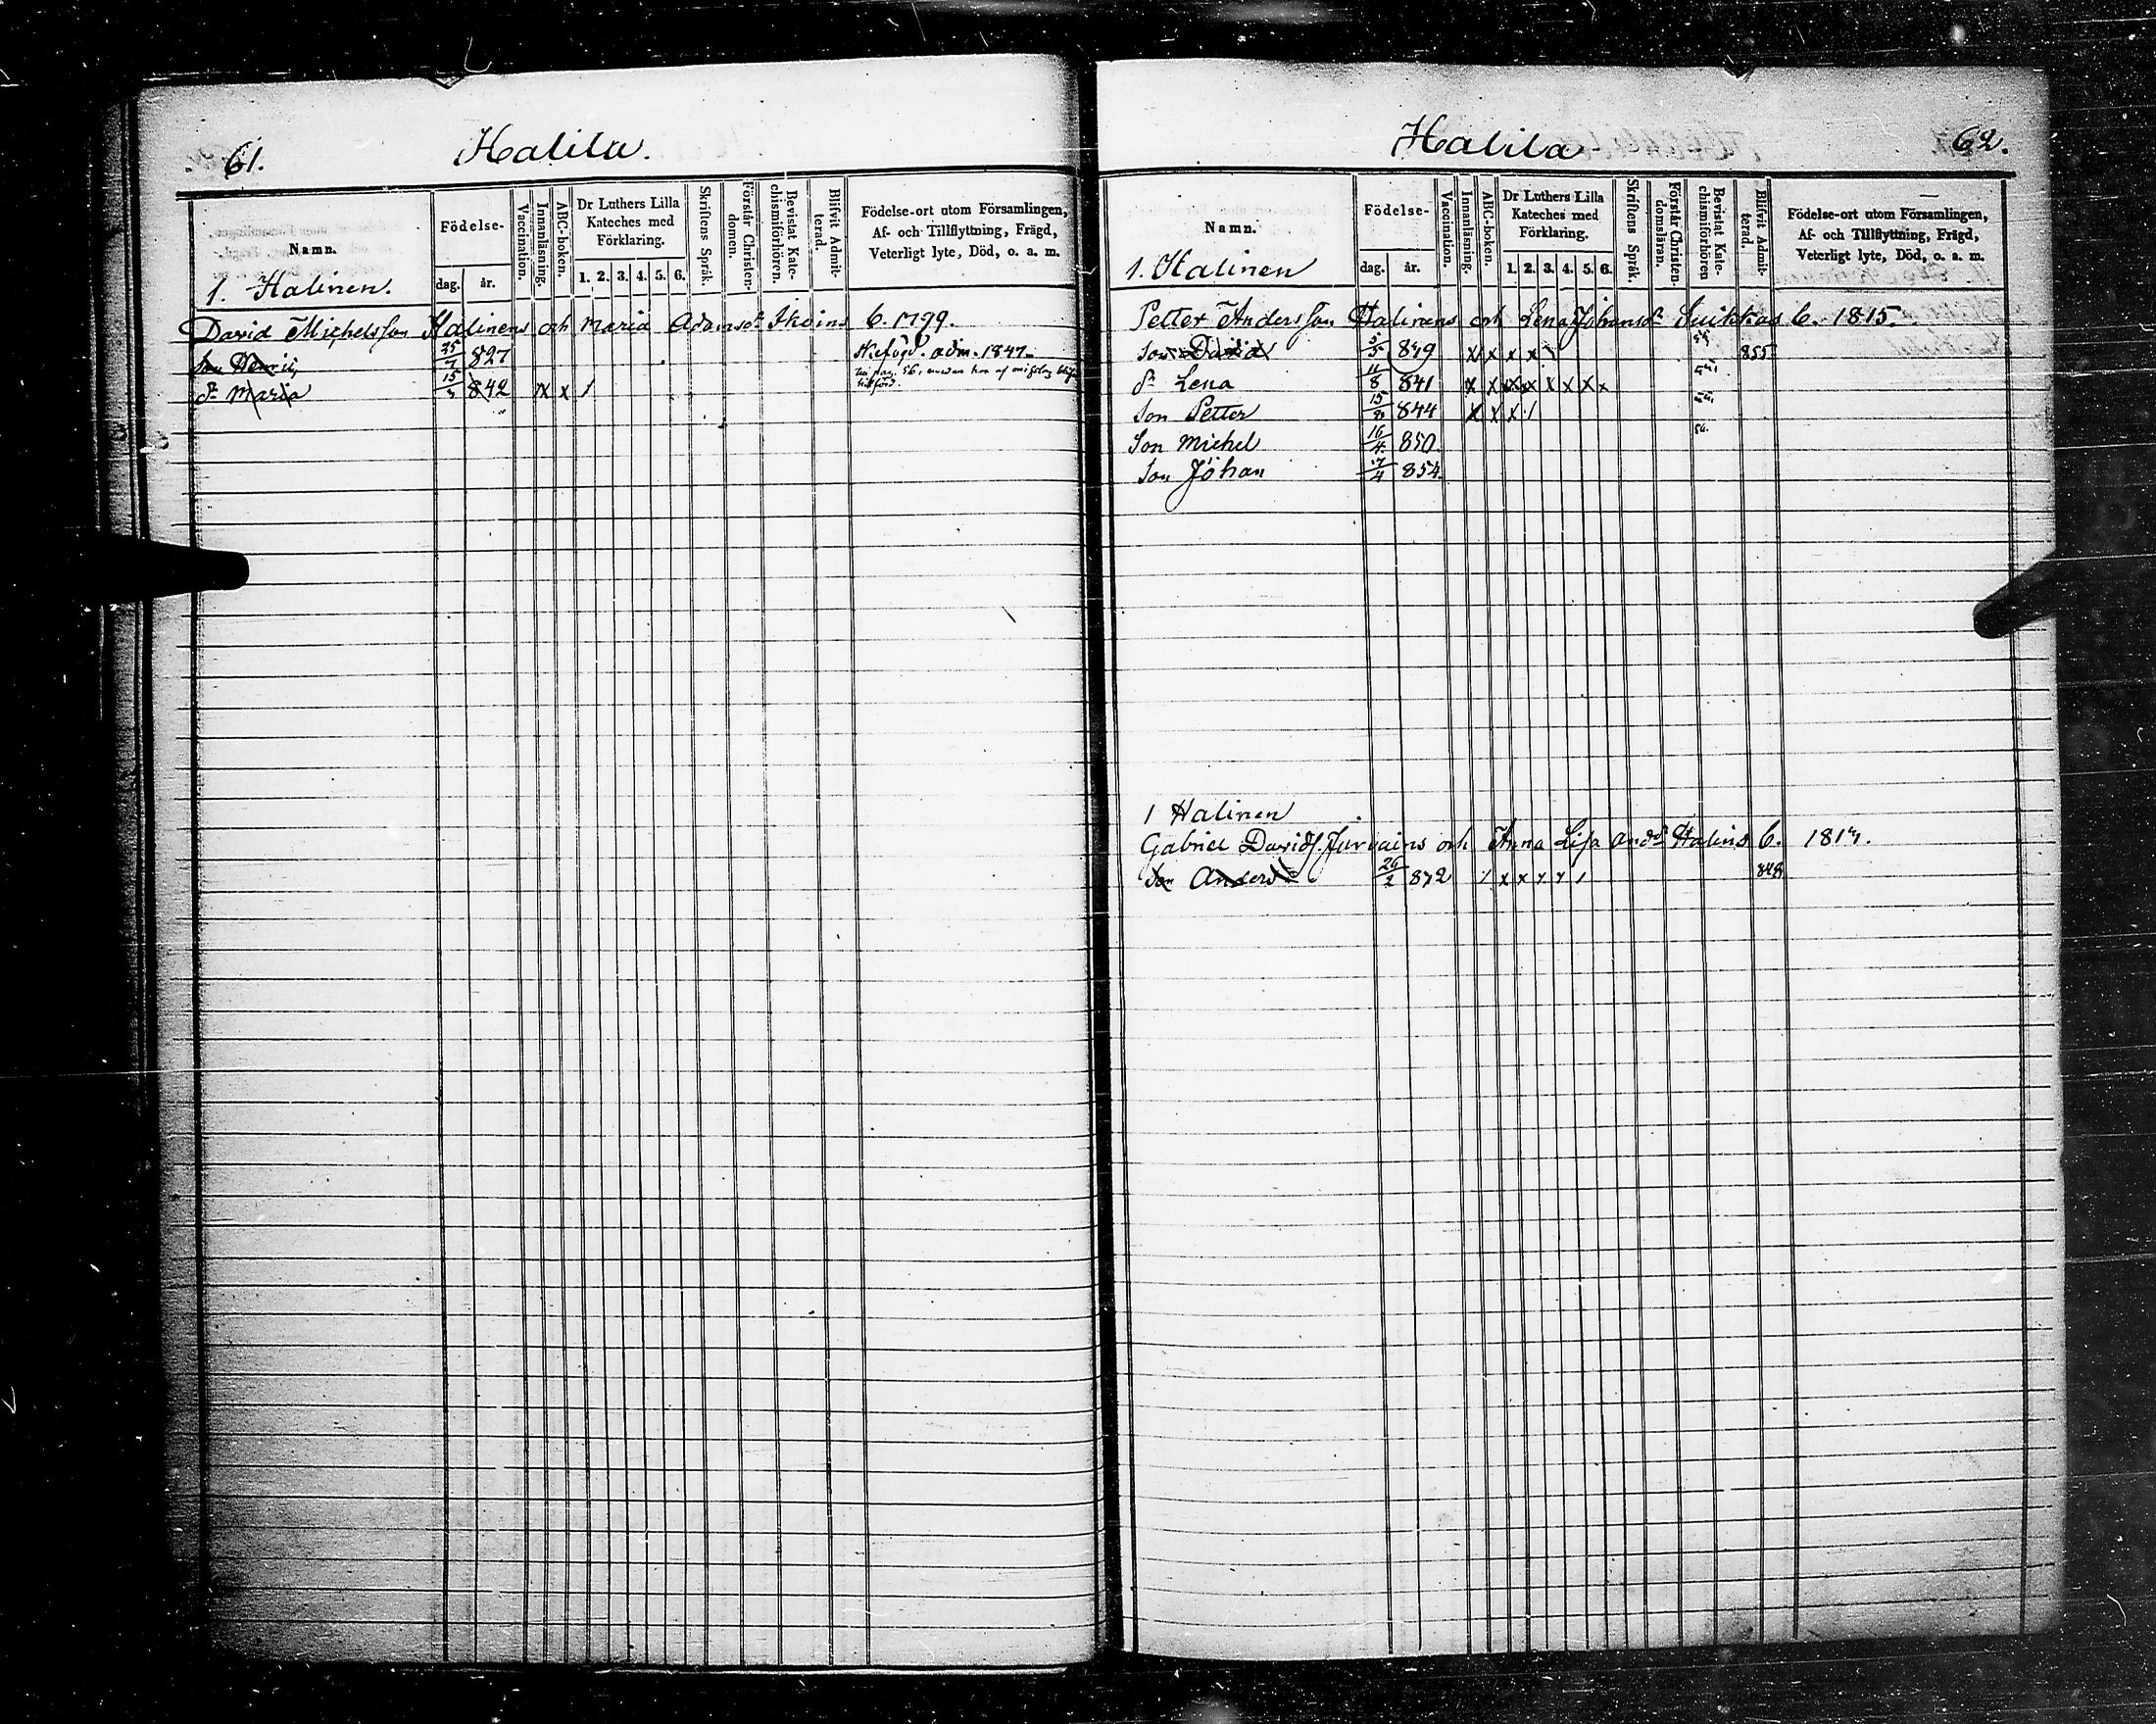 61.
Halila.
Namn.
1. Halinen.
Födelse-
dag.
år.
Vaccination.
Innanläsning.
ABC-boken.
Dr Luthers Lilla
Kateches med
Förklaring.
1. 2. 3. 4. 5. 6.
Skriftens Språk.
Förstår Christen-
domen.
Bevistat Kate-
chismiförhören.
Blifvit Admit-
terad.
Födelse-ort utom Församlingen,
Af- och Tillflyttning, Frägd,
Veterligt lyte, Död, o. a. m.
David Michelsson Halinens och Maria Adamsdr Ikoins b. 1799.
Son Henric 827 adm. 1847.
dr Maria 15 842 x x 1 pag. 56,
Halila
62.
Namn.
1. Halinen
Födelse-
dag.
år.
Vaccination.
Innanläsning.
ABC-boken.
Dr Luthers Lilla
Kateches med
Förklaring.
1. 2. 3. 4. 5. 6.
Skriftens Språk.
Förstår Christen-
domsläran.
Bevistat Kate-
chismiförhören
Blifvit Admit-
terad.
Födelse-ort utom Församlingen,
Af- och Tillflyttning, Frägd,
Veterligt lyte, Död, o. a. m.
Petter Andersson Halinens och Lena Johansdr Suikkas b. 1815.
Son David 5/5 839 x x x x 855
dr Lena 11/8 841 x x x x x x x x
Son Petter 844 x x x 1
Son Michel 16/4 850. 56.
Son Johan 17/4 854.
1 Halinen
Gabriel Davids. Jurvains och Anna Lisa Andsdr Halins b. 1817.
Son Anders 26/2 832 848